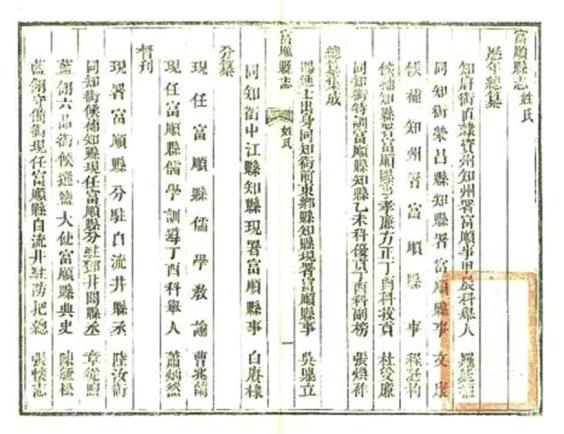 富順縣志 姓氏
歷年總纂
知府銜直隸資州知州署富順事甲辰科舉人
同知銜榮昌縣知縣署富順縣事 文康
候補知州署富順縣事
候補知縣署富順縣事孝廉方正丁酉科拔貢 杜
同知銜特調富順縣知縣乙未科優貢丁酉科副榜 張
總纂集成
賜進士出身同知銜前東鄉縣知縣現署富順縣事 吳鼎立
富順縣志 姓氏
同知銜中江縣知縣現署富順縣事 白
分纂
現任富順縣儒學教諭 曹
現任富順縣儒學訓導丁酉科舉人 蕭炳然
督刊
現署富順縣分駐自流井縣丞 陸汝銜
同知銜候補知縣現任富順縣分駐鄧井關縣丞 章
藍翎六品銜候選鹽大使富順縣典史 陳
藍翎守備銜現任富順縣自流井駐防把總 張懷志